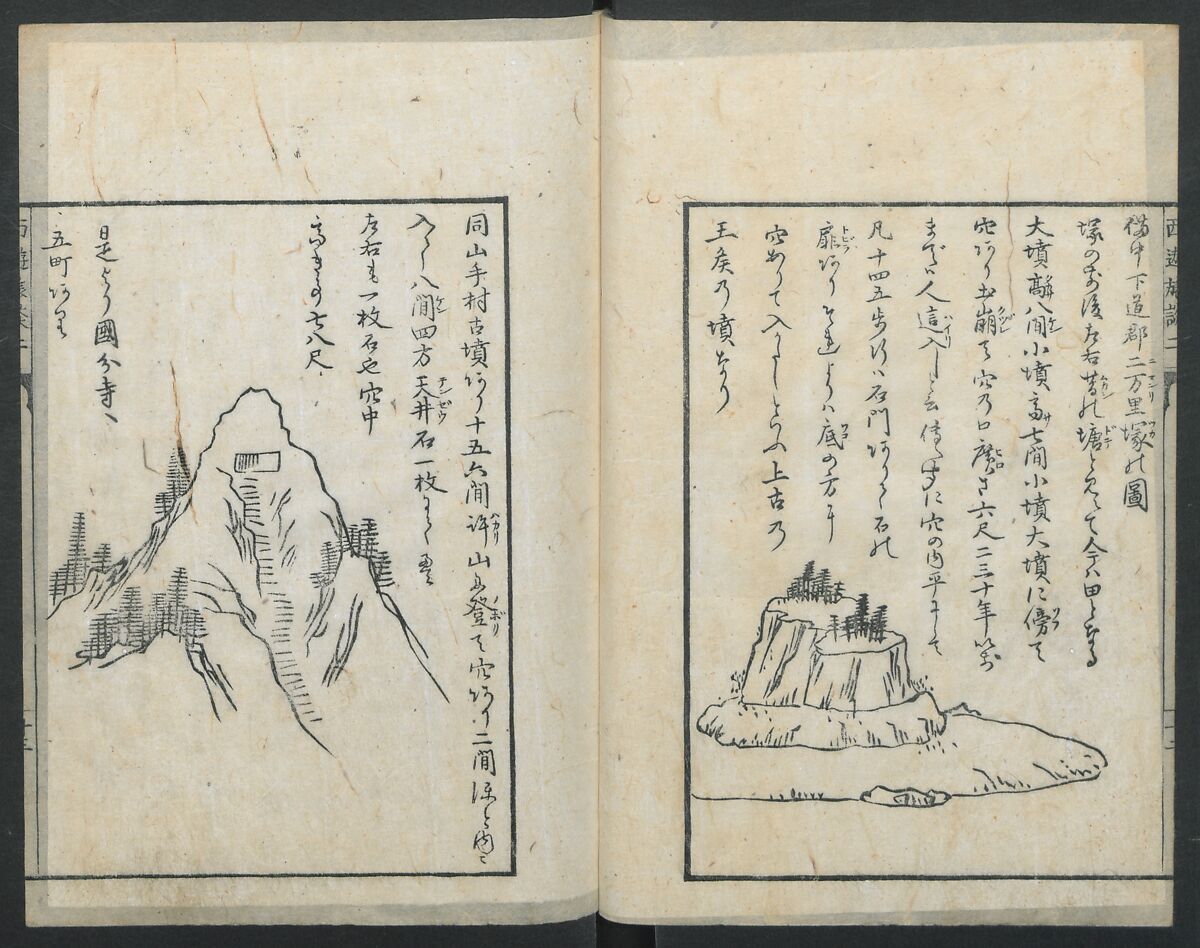 備中下道郡二万里塚の圖
塚の前後左右昔の塘と見へて今ハ田となる
大墳高八間小墳高七間小墳大墳に傍て
穴あり土崩て穴の口廣さ六尺二三十年以前
までハ人這入しと云傳ふ穴の内平にて
凡十四五歩行ハ石門あり石の
扉ありそれよりハ底の方に
穴ありて入かたしといふ上古の
王侯の墳なり
同山手村古墳あり十五六間許山に登て穴あり二間ほと内に
入レハ八間四方天井石一枚にして
左右も一枚石也穴中
高さ七八尺
是より國分寺へ
五町あり
西遊旅談二
十三